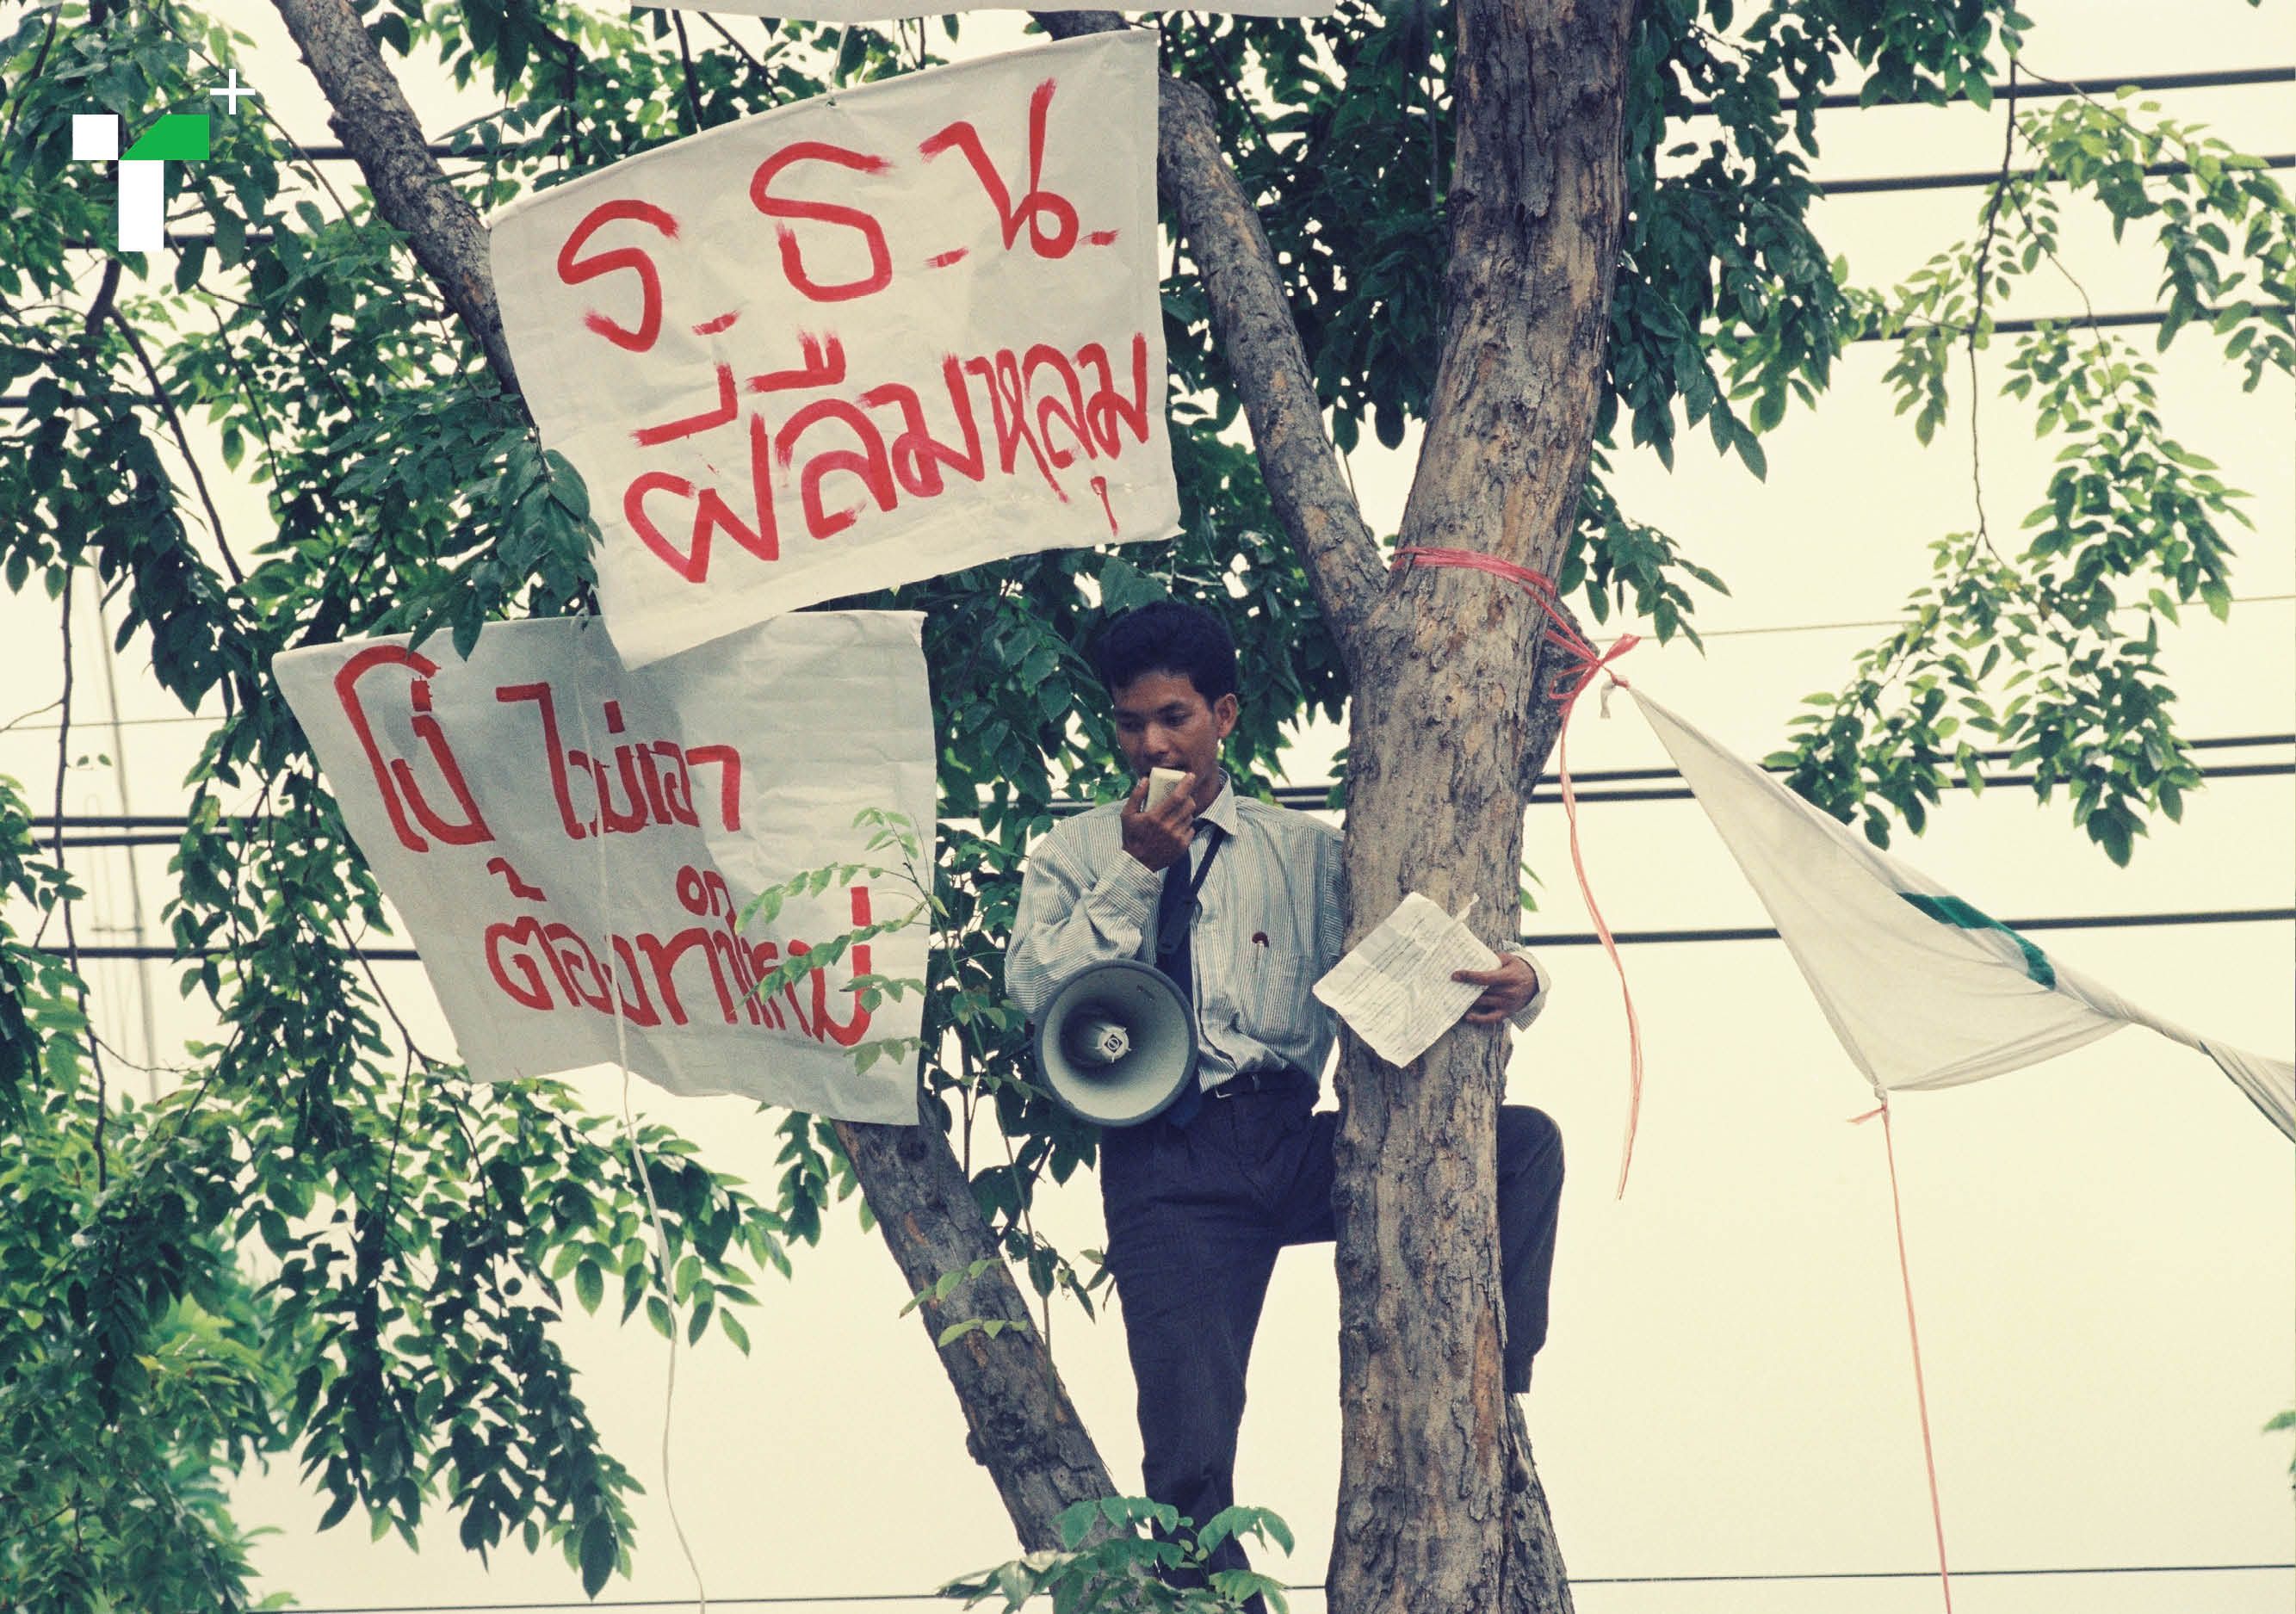 ร.ธ.น.
ผีลืมหลุม
โง่ ไม่เอา
ต้องทำใหม่